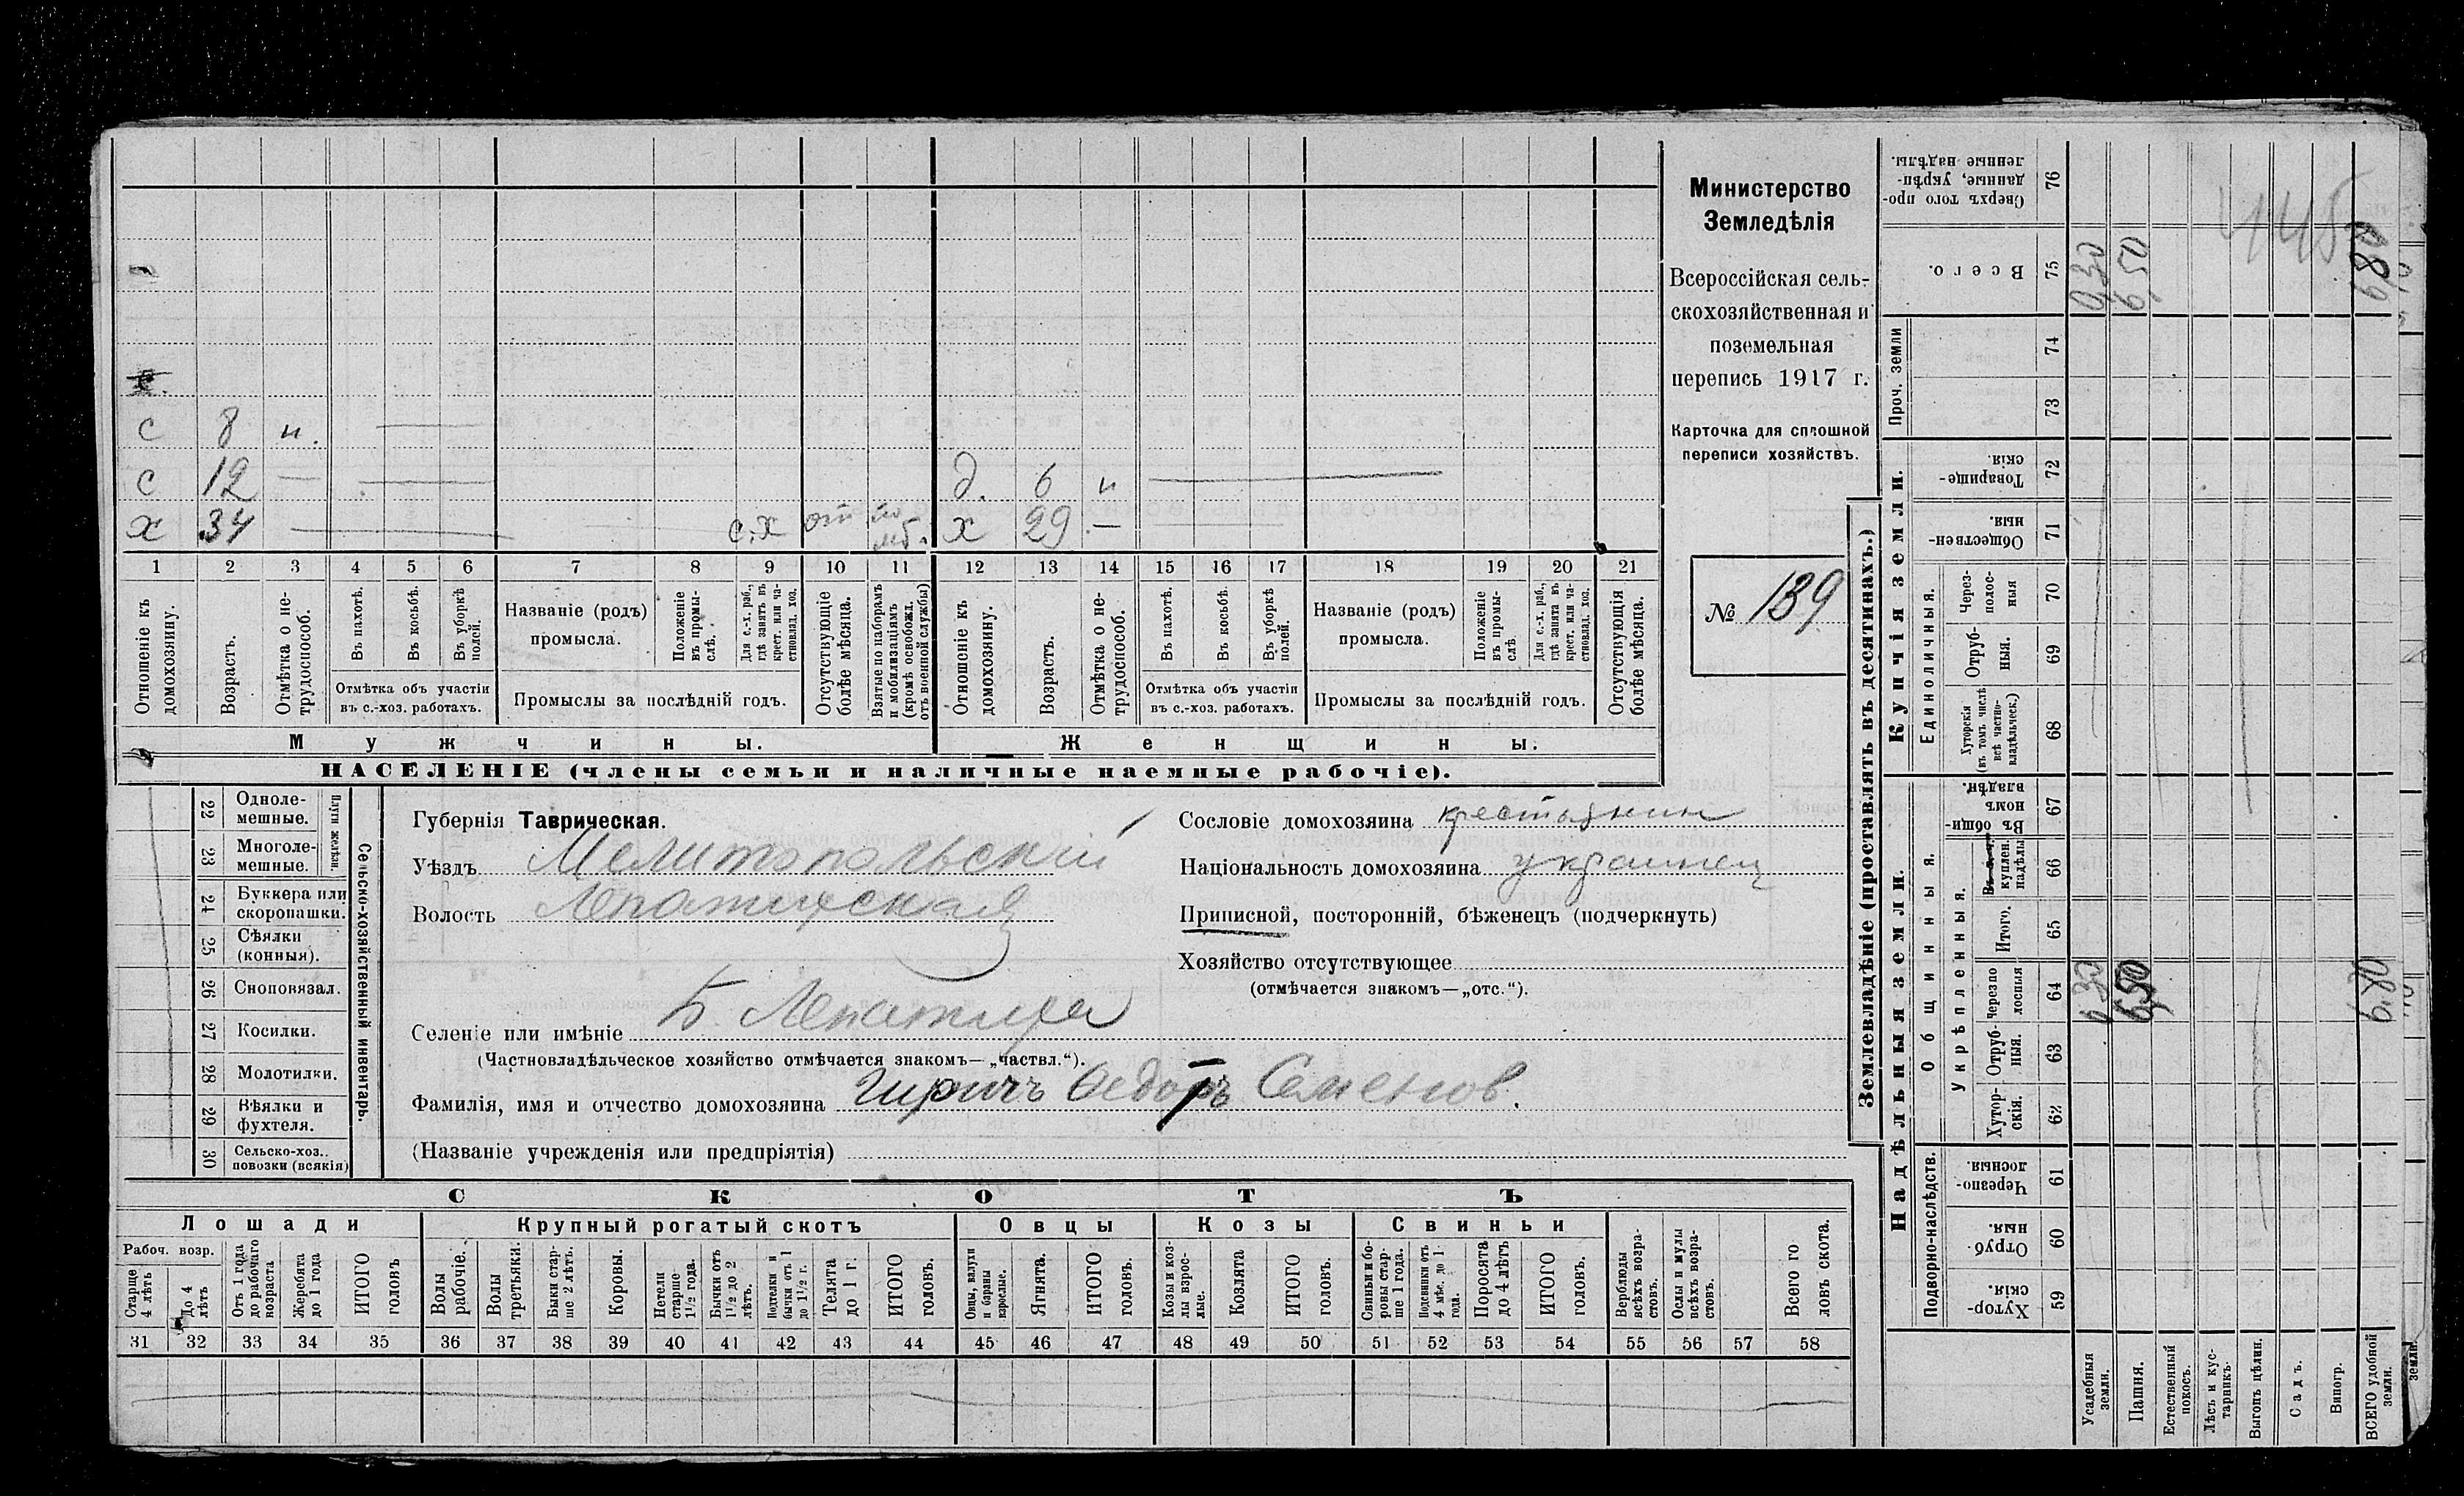 с 8 н. —
с 12 — —
х 34 — с.х отп по мб.
д. 6 н —
х 29 — —
1 2 3 4 5 6 7 8 9 10 11 12 13 14 15 16 17 18 19 20 21
Отношеніе къ домохозяину.
Возрастъ.
Отмѣтка о нетрудоспособ.
Въ пахотѣ.
Въ косьбѣ.
Въ уборкѣ полей.
Отмѣтка объ участіи
въ с.-хоз. работахъ.
Названіе (родъ)
промысла.
Положеніе въ промыслѣ.
Для с.-х. раб., гдѣ занятъ въ крест. или частновлад. хоз.
Промыслы за послѣдній годъ.
Отсутствующіе болѣе мѣсяца.
Взятые по наборамъ и мобилизаціямъ (кромѣ освобожд. отъ военной службы)
Отношеніе къ домохозяину.
Возрастъ.
Отмѣтка о нетрудоспособ.
Въ пахотѣ.
Въ косьбѣ.
Въ уборкѣ полей.
Отмѣтка объ участіи
въ с.-хоз. работахъ.
Названіе (родъ)
промысла.
Положеніе въ промыслѣ
Для с.-х. раб., гдѣ занята въ крест. или частновлад. хоз.
Промыслы за послѣдній годъ.
Отсутствующія болѣе мѣсяца.
Мужчины.
Женщины.
НАСЕЛЕНІЕ (члены семьи и наличные наемные рабочіе).
Министерство
Земледѣлія
Всероссійская сель-
скохозяйственная и
поземельная
перепись 1917 г.
Карточка для сплошной
переписи хозяйствъ.
№ 139
Сельско-хозяйственный инвентарь.
Плуги желѣзн.
22 Однолемешные.
23 Многолемешные.
24 Буккера или скоропашки.
25 Сѣялки (конныя).
26 Сноповязал.
27 Косилки.
28 Молотилки.
29 Вѣялки и фухтеля.
30 Сельско-хоз. повозки (всякія)
Губернія Таврическая.
Уѣздъ Мелитопольскій
Волость Лепатихская
Селеніе или имѣніе Б. Лепатиха
(Частновладѣльческое хозяйство отмѣчается знакомъ—„частвл.“).
Фамилія, имя и отчество домохозяина Гиричъ Ѳедоръ Семенов.
(Названіе учрежденія или предпріятія)
Сословіе домохозяина крестьянин
Національность домохозяина украинец
Приписной, посторонній, бѣженецъ (подчеркнуть)
Хозяйство отсутствующее
(отмѣчается знакомъ—„отс.“).
СКОТЪ
Лошади
Крупный рогатый скотъ
Овцы
Козы
Свиньи
Рабоч. возр.
Старше 4 лѣтъ
До 4 лѣтъ
Отъ 1 года до рабочаго возраста
Жеребята до 1 года
ИТОГО головъ
Волы рабочіе.
Волы третьяки.
Быки старше 2 лѣтъ.
Коровы.
Нетели старше 1½ года.
Бычки отъ 1½ до 2 лѣтъ.
Подтелки и бычки отъ 1 до 1½ г.
Телята до 1 г.
ИТОГО головъ.
Овцы, валухи и бараны взрослые.
Ягнята.
ИТОГО головъ.
Козы и козлы взрослые.
Козлята
ИТОГО головъ.
Свиньи и боровы старше 1 года.
Подсвинки отъ 4 мѣс. до 1 года.
Поросята до 4 лѣтъ
ИТОГО головъ.
Верблюды всѣхъ возрастовъ.
Ослы и мулы всѣхъ возрастовъ.
Всего головъ скота.
31 32 33 34 35 36 37 38 39 40 41 42 43 44 45 46 47 48 49 50 51 52 53 54 55 56 57 58
Землевладѣніе (проставлять въ десятинахъ.)
Надѣльныя земли.
Купчія земли.
Проч. земли
Подворно-наслѣдств.
Общинныя.
Укрѣпленныя.
Единоличныя.
Сверхъ того проданные, укрѣпленные надѣлы. 76
Всего. 75
74
73
Товарищескія. 72
Общественныя. 71
Черезполосныя 70
Отрубныя. 69
Хуторскія (въ томъ числѣ всѣ частновладѣльческ.) 68
Въ общинномъ владѣн. 67
Въ т. ч. куплен. надѣлы 66
Итого. 65
Черезполосныя 64
Отрубныя. 63
Хуторскія. 62
Черезполосныя. 61
Отрубныя. 60
Хуторскія. 59
Усадебныя земли. 0,30 0,30
Пашня. 6,50 6,50
Естественный покосъ.
Лѣсъ и кустарникъ.
Выгонъ цѣлин.
Садъ.
Виногр.
ВСЕГО удобной земли. 6,80 6,80
земли.